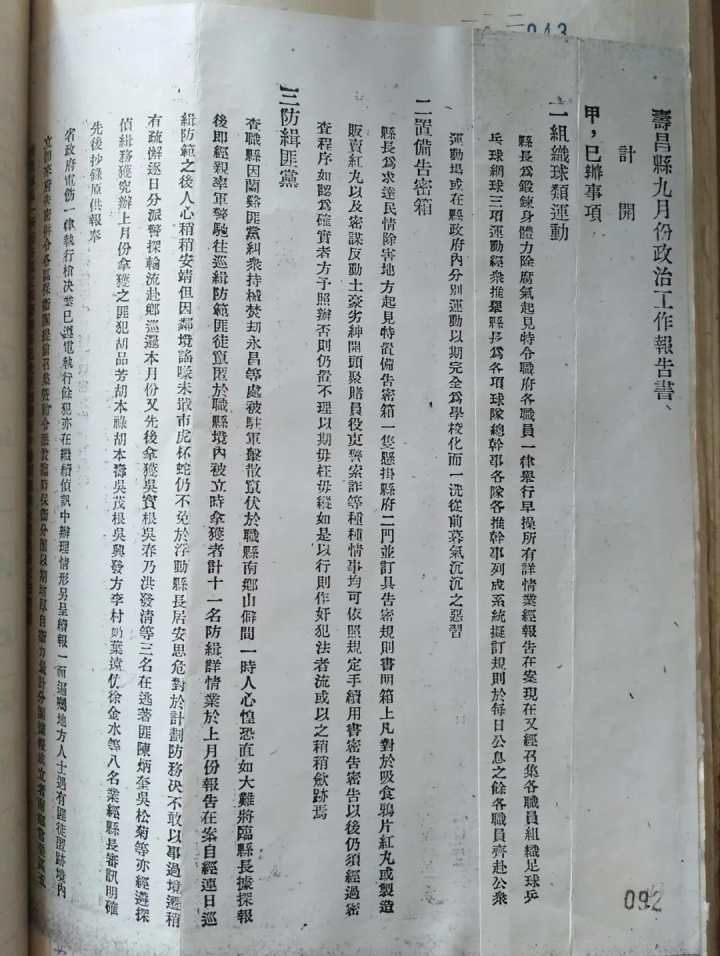 043
壽昌縣九月份政治工作報告書、
計開
甲，已辦事項
一組織球類運動
縣長爲鍛鍊身體力除腐氣起見特令職府各職員一律舉行早操所有詳情業經報告在案現在又經召集各職員組織足球乒
乓球網球三項運動經衆推舉縣長爲各項球隊總幹事各隊各推幹事列成系統擬訂規則於每日公息之餘各職員齊赴公衆
運動塲或在縣政府內分別運動以期完全爲學校化而一洗從前暮氣沉沉之惡習
二置備告密箱
縣長爲求達民情除害地方起見特置備告密箱一隻懸掛縣府二門並訂具告密規則書明箱上凡對於吸食鴉片紅丸或製造
販賣紅丸以及密謀反動土豪劣紳開頭聚賭員役吏警索詐等種種情事均可依照規定手續用書密告密告以後仍須經過密
查程序如認爲確實者方予照辦否則仍置不理以期毋枉毋縱如是以行則作奸犯法者流或以之稍稍斂跡焉
三防緝匪黨
查職縣因蘭谿匪黨糾衆持械焚刧永昌等處被駐軍擊散竄伏於職縣南鄉山僻間一時人心惶恐直如大難將臨縣長據探報
後即經親率軍警馳往巡緝防範匪徒竄匿於職縣境內被立時拿獲者計十一名防緝詳情業於上月份報告在案自經連日巡
緝防範之後人心稍稍安靖但因鄰境謠啄未戢市虎杯蛇仍不免於浮動縣長居安思危對於計劃防務决不敢以事過境遷稍
有疏懈逐日分派警探輪流赴鄉巡邏本月份又先後拿獲吳寶根吳春乃洪發清等三名在逃著匪陳炳奎吳松菊等亦經遴探
偵緝務獲究辦上月份拿獲之匪犯胡品芳胡本祿胡本濤吳茂根吳興發方李村奶葉遠伩徐金水等八名業經縣長審訊明確
先後抄錄原供報奉
省政府電飭一律執行槍决業已遵電執行餘犯亦在繼續偵訊中辦理情形另呈續報一面遍囑地方人士遇有匪徒匿跡境內
立即來府告密併令各區保衛團
092